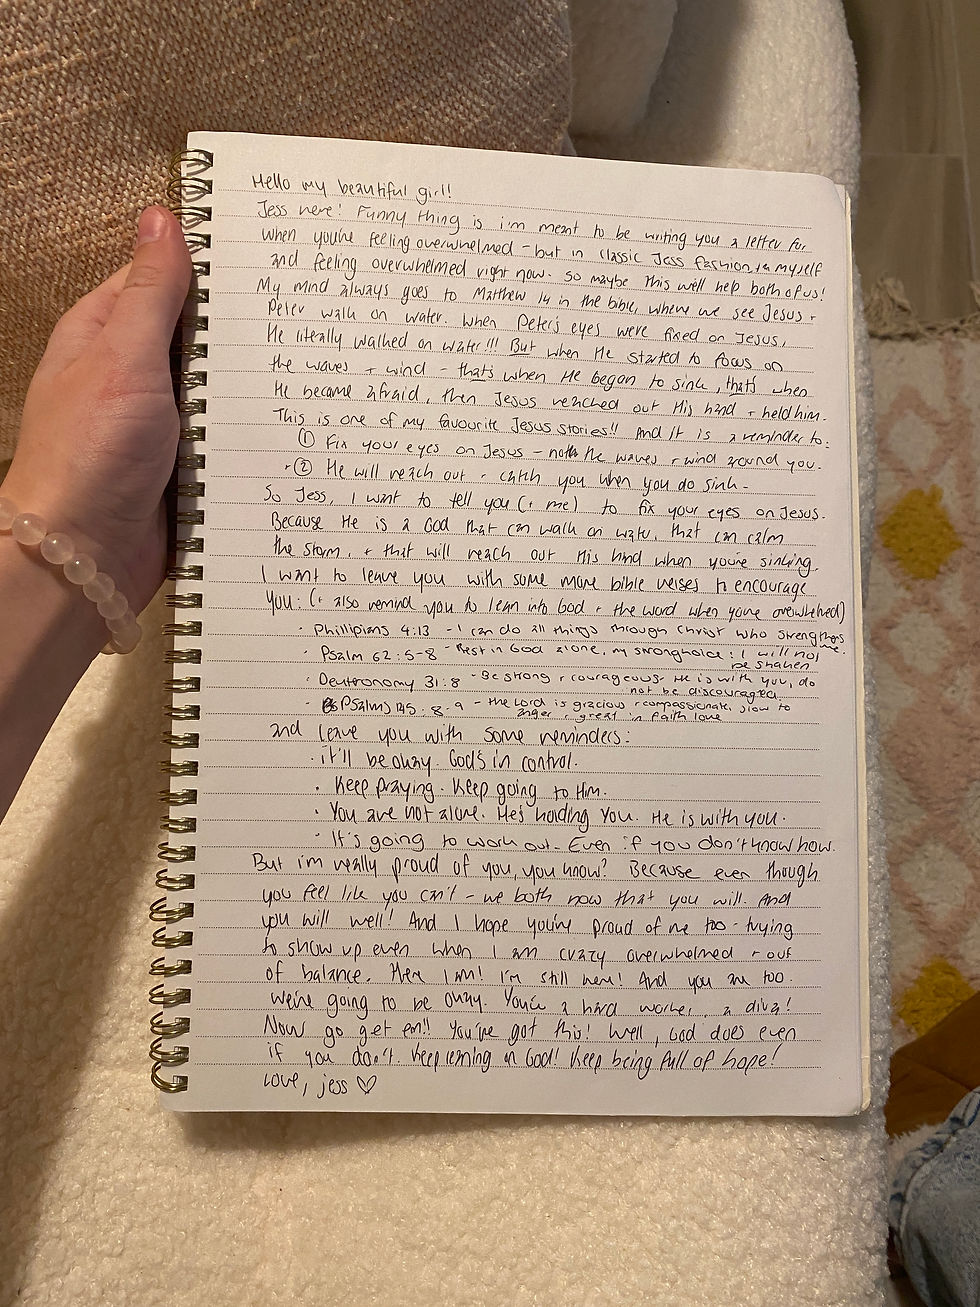 Hello my beautiful girl!
Jess here! Funny thing is i'm meant to be writing you a letter for
when you're feeling overwhelmed - but in classic Jess fashion, i'm myself
and feeling overwhelmed right now. So maybe this will help both of us!
My mind always goes to Matthew 14 in the bible, where we see Jesus +
Peter walk on water. When Peter's eyes were fixed on Jesus,
He literally walked on water!!! But when He started to focus on
the waves + wind - that's when He began to sink, that's when
He became afraid, then Jesus reached out His hand + held him.
This is one of my favourite Jesus stories!! And it is a reminder to:
① Fix your eyes on Jesus - not the waves + wind around you.
· ② He will reach out + catch you when you do sink -
So Jess, I want to tell you (+ me) to fix your eyes on Jesus.
Because He is a God that can walk on water, that can calm
the storm, + that will reach out His hand when you're sinking.
I want to leave you with some more bible verses to encourage
You: (+ also remind you to lean into God + the word when you're overwhelmed)
· Phillipians 4:13 - I can do all things through Christ who strengthens me.
· Psalm 62:5-8 - Rest in God alone, my stronghold: I will not
be shaken
· Deuteronomy 31:8 - Be strong + courageous. He is with you, do
not be discouraged
· Psalms 145:8-9 - the Lord is gracious + compassionate, slow to
anger + great in faith love
and leave you with some reminders:
· it'll be okay. God's in control.
· Keep praying. Keep going to Him.
· You are not alone. He's holding You. He is with you.
· It's going to work out. Even if you don't know how.
But i'm really proud of you, you know? Because even though
you feel like you can't - we both now that you will. And
you will well! And I hope you're proud of me too - trying
to show up even when I am crazy overwhelmed + out
of balance. Here I am! I'm still here! And you are too.
We're going to be okay. You're a hard worker, a diva!
Now go get em!! You've got this! Well, God does even
if you don't. Keep leaning on God! Keep being full of hope!
Love, jess ♡